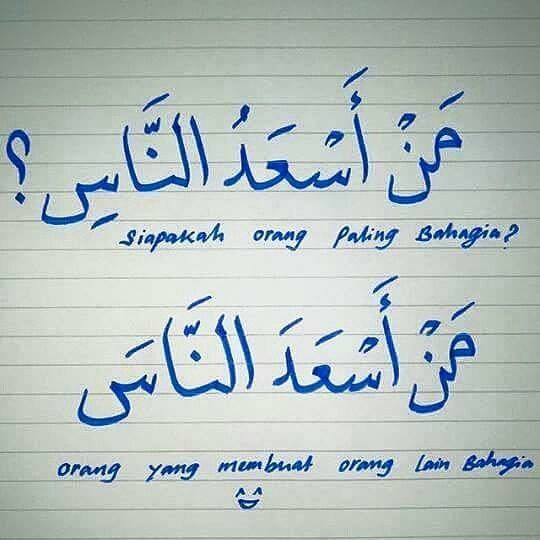 مَنْ أَسْعَدُ النَّاسِ؟
Siapakah orang Paling Bahagia?
مَنْ أَسْعَدَ النَّاسَ
orang yang membuat orang Lain Bahagia